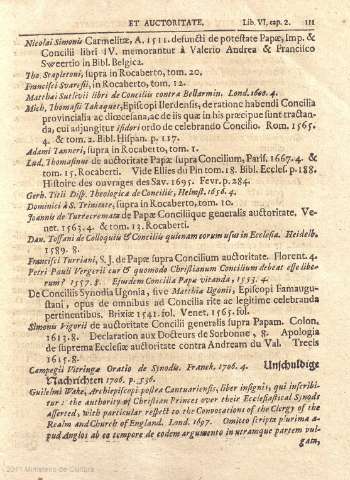 ET AUCTORITATE. Lib. VI, cap. 2. 111
Nicolai Simonis Carmelitæ, A. 1511. defuncti de potestate Papæ, Imp. &
Concilii libri IV. memorantur à Valerio Andrea & Francisco
Sweertio in Bibl. Belgica.
Tho. Stapletoni, supra in Rocaberto, tom. 20.
Francisci Svaresii, in Rocaberto, tom. 12.
Matthæi Sutlevii libri de Concilio contra Bellarmin. Lond. 1600. 4.
Mich. Thomasii Takaquet, Episcopi Ilerdensis, de ratione habendi Concilia
provincialia ac diœcelana, ac de iis quæ in his præcipue sunt tractan-
da, cui adjungitur Isidori ordo de celebrando Concilio. Rom. 1565.
4. & tom. 2. Bibl. Hispan. p. 117.
Adami Tanneri, supra in Rocaberto, tom. 1.
Lud. Thomassinus de auctoritate Papæ supra Concilium, Paris. 1667. 4. &
tom. 15. Rocaberti. Vide Ellies du Pin tom. 18. Bibl. Eccles. p. 188.
Histoire des ouvrages des Sav. 1695. Fevr. p. 284.
Gerh. Titii Diss. Theologica de Conciliis, Helmst. 1656. 4.
Dominici à S. Trinitate, supra in Rocaberto, tom. 10.
Joannis de Turrecremata de Papæ Conciliique generalis auctoritate, Ve-
net. 1563. 4. & tom. 13. Rocaberti.
Dan. Tossani de Colloquiis & Conciliis quinam eorum usus in Ecclesia. Heidelb.
1589. 8.
Francisci Turriani, S. J. de Papæ supra Concilium auctoritate. Florent. 4.
Petri Pauli Vergerii cur & quomodo Christianum Concilium debeat esse libe-
rum? 1557. 8. Ejusdem Concilia Papæ vitanda, 1553. 4.
De Conciliis Synodia Ugonia, sive Matthiæ Ugonii, Episcopi Famaugu-
stani, opus de omnibus ad Concilia rite ac legitime celebranda
pertinentibus. Brixiæ 1541. fol. Venet. 1565. fol.
Simonis Vigorii de auctoritate Concilii generalis supra Papam. Colon.
1613. 8. Declaration aux Docteurs de Sorbonne, 8. Apologia
de suprema Ecclesiæ auctoritate contra Andream du Val. Trecis
1615. 8.
Campegii Vitringæ Oratio de Synodis. Franek. 1706. 4. Unschuldige
Nachrichten 1706. p. 556.
Guilelmi Wake, Archiepiscopi postea Cantuariensis, liber insignis, qui inscribi-
tur: the authority of Christian Princes over their Ecclesiastical Synods
asserted, with particular respect to the Convocations of the Clergy of the
Realm and Church of England. Lond. 1697. Omitto scripta plurima a-
pud Anglos ab eo tempore de eodem argumento in utramque partem vul-
gata,
2011 Ministerio de Cultura